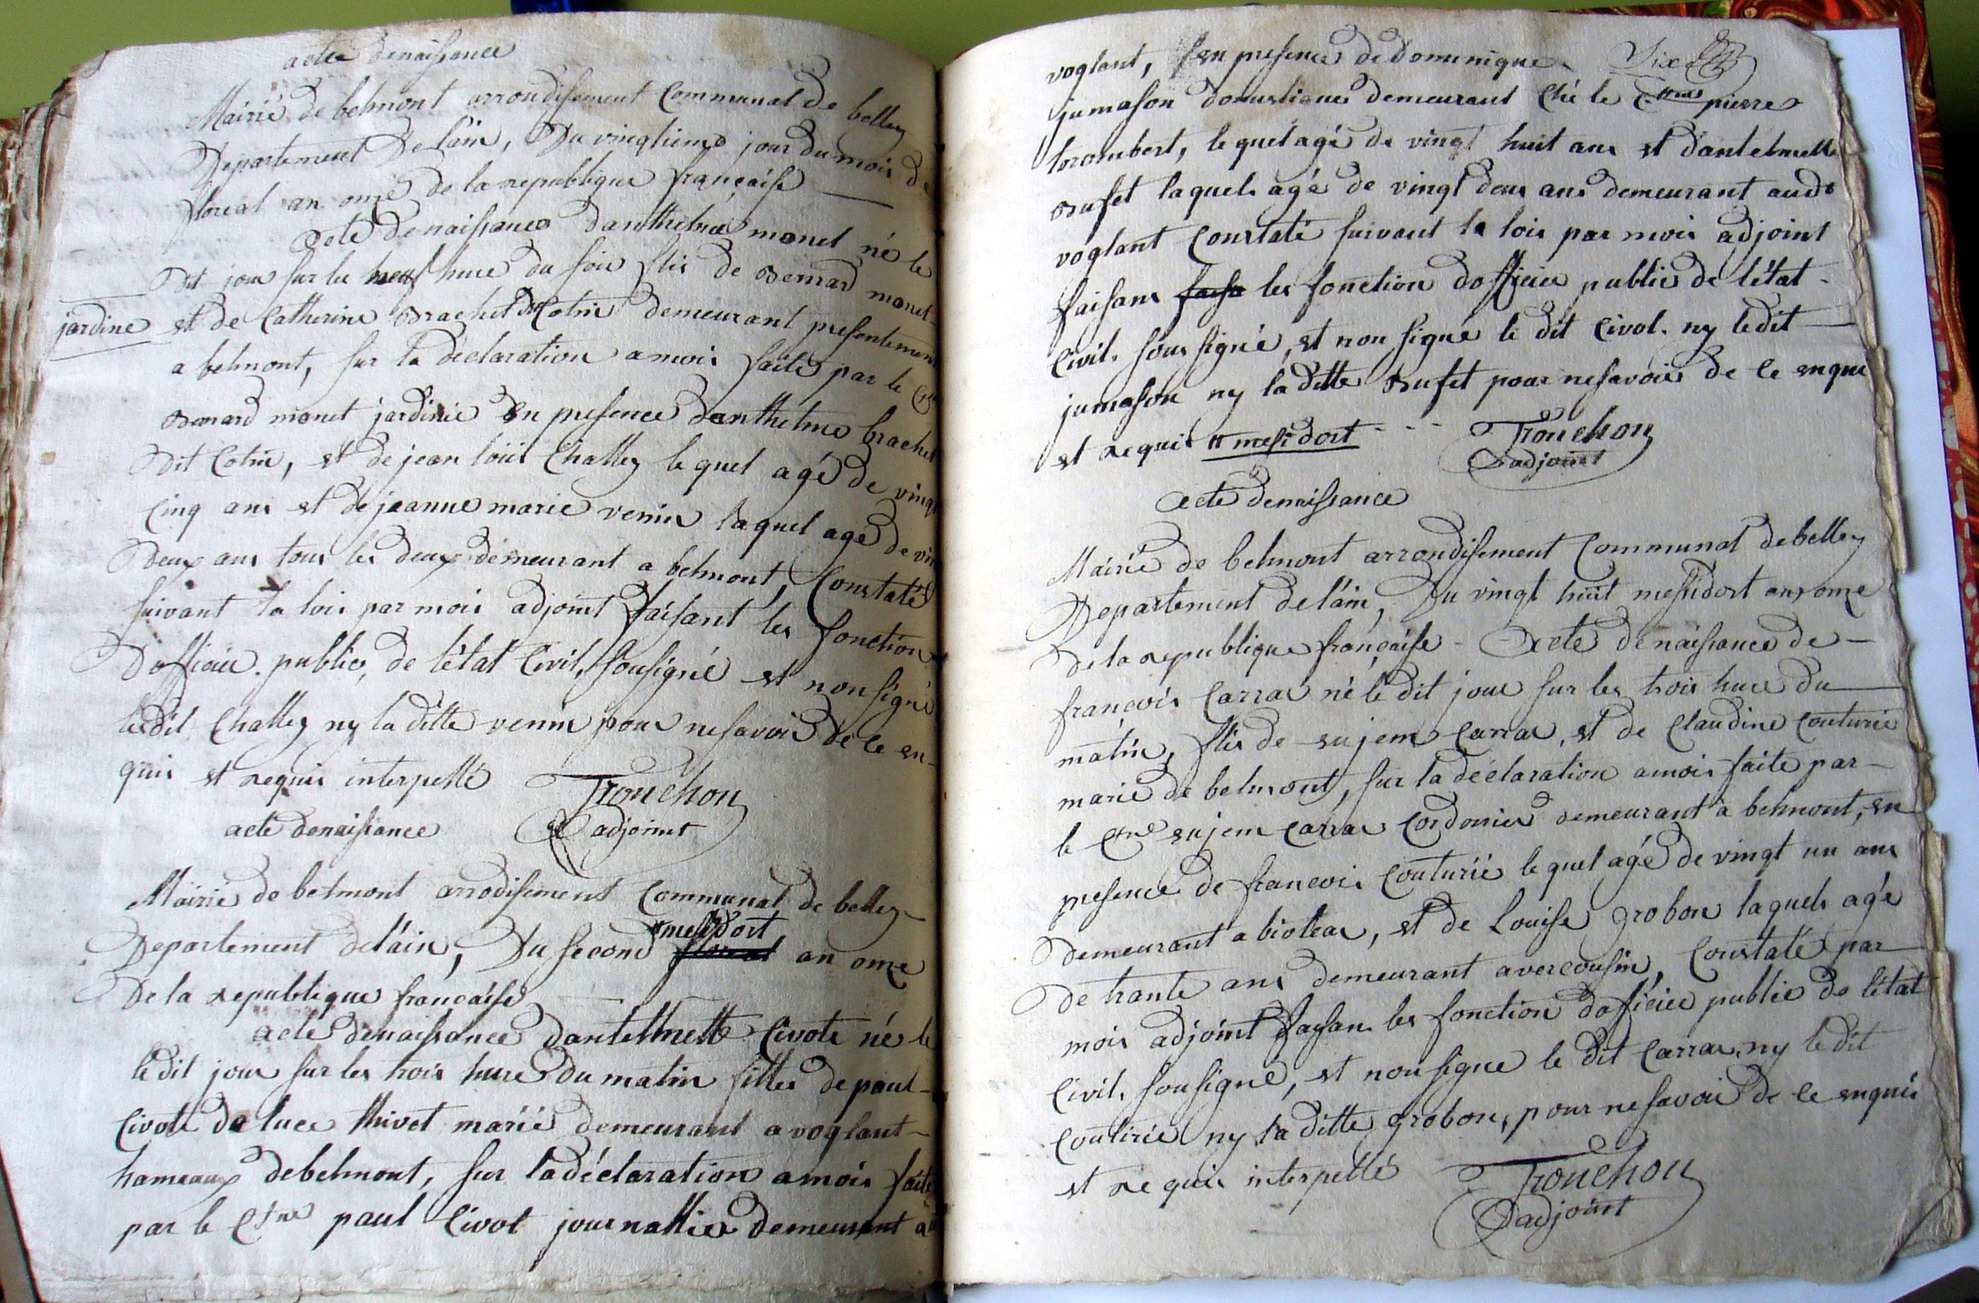 acte denaissance
Mairie de belmont arrondisement Communal de belley
Departement de l'ain, Du vingtieme jour du mois de
floreal an onze de la republique françaisse
Acte denaissance danthelme monet né le
Dit jour sur les neuf hure du soir fils de Bernard monet
jardine et de Catherine Brachet dit Colin demeurant presentement
a belmont, sur la déclaration a moi faite par le
Bernard monet jardinie En presence danthelme brachet
Dit Colin, et de jean loüis Challey le quel agé de vingt
Cinq ans et de jeanne marie venin laquel agé de
Deux ans tous les deux demeurant a belmont, Constaté
suivant la lois par mois adjoint faisant les fonction
Dofficier public, de l'état Civil, sousigné et non signé
ledit Challey ny la ditte venin pour nesavoir de ce en-
quis et requis interpellé
Trouchon
adjoint
acte denaissance
Mairie de belmont arrodisement Communal de belley
Departement de l'ain, Du second messidort floreal an onze
De la republique française
acte denaissance dantelmette Civote né le
le dit jour sur les trois hure du matin filles de paul
Civote de luce thivet mariés demeurant a voglant
hameaux debelmont, sur la déclaration a mois faite
par le Ctne paul Civot journallier demeurant a
voglant, En presence de Dominique Six
jumason domestique demeurant Ché le pierre
lorombert, le quel agé de vingt huit ans et dantelmette
Bufet laquele agé de vingt deux ans demeurant audt
voglant Constaté suivant la lois par mois adjoint
faisans faisa les fonction dofficier public de l'état
Civil. sous signé, et non signé le dit Civot. ny ledit
jumason ny la ditte Bufet pour nesavoir de ce enquis
et requis messidort
Trouchon
adjoint
Acte denaissance
Mairie de belmont arrondisement Communal debelley
Departement de l'ain, Du vingt huit messidort an onze
De la republique françaisse - Acte denaissance de
francois Carrar né le dit jour sur les trois hure du
matin, fils de sujem Carrar, et de Claudine Couturie
marié de belmont, sur la déclaration a mois faite par
le Ctne sujem Carrar Cordonier demeurant a belmont, En
presence de francois Couturié le quel agé de vingt un ans
Demeurant a bioleas, et de Louise grobon laquele agé
De trante ans demeurant a vercousin, Constaté par
mois adjoint faysan les fonction dofficier public de l'état
Civil, sousigné, et non signe le dit Carrar, ny le dit
Coutirié ny la ditte grobon, pour nesavoir de ce enquis
et requis interpellé
Trouchon
adjoint